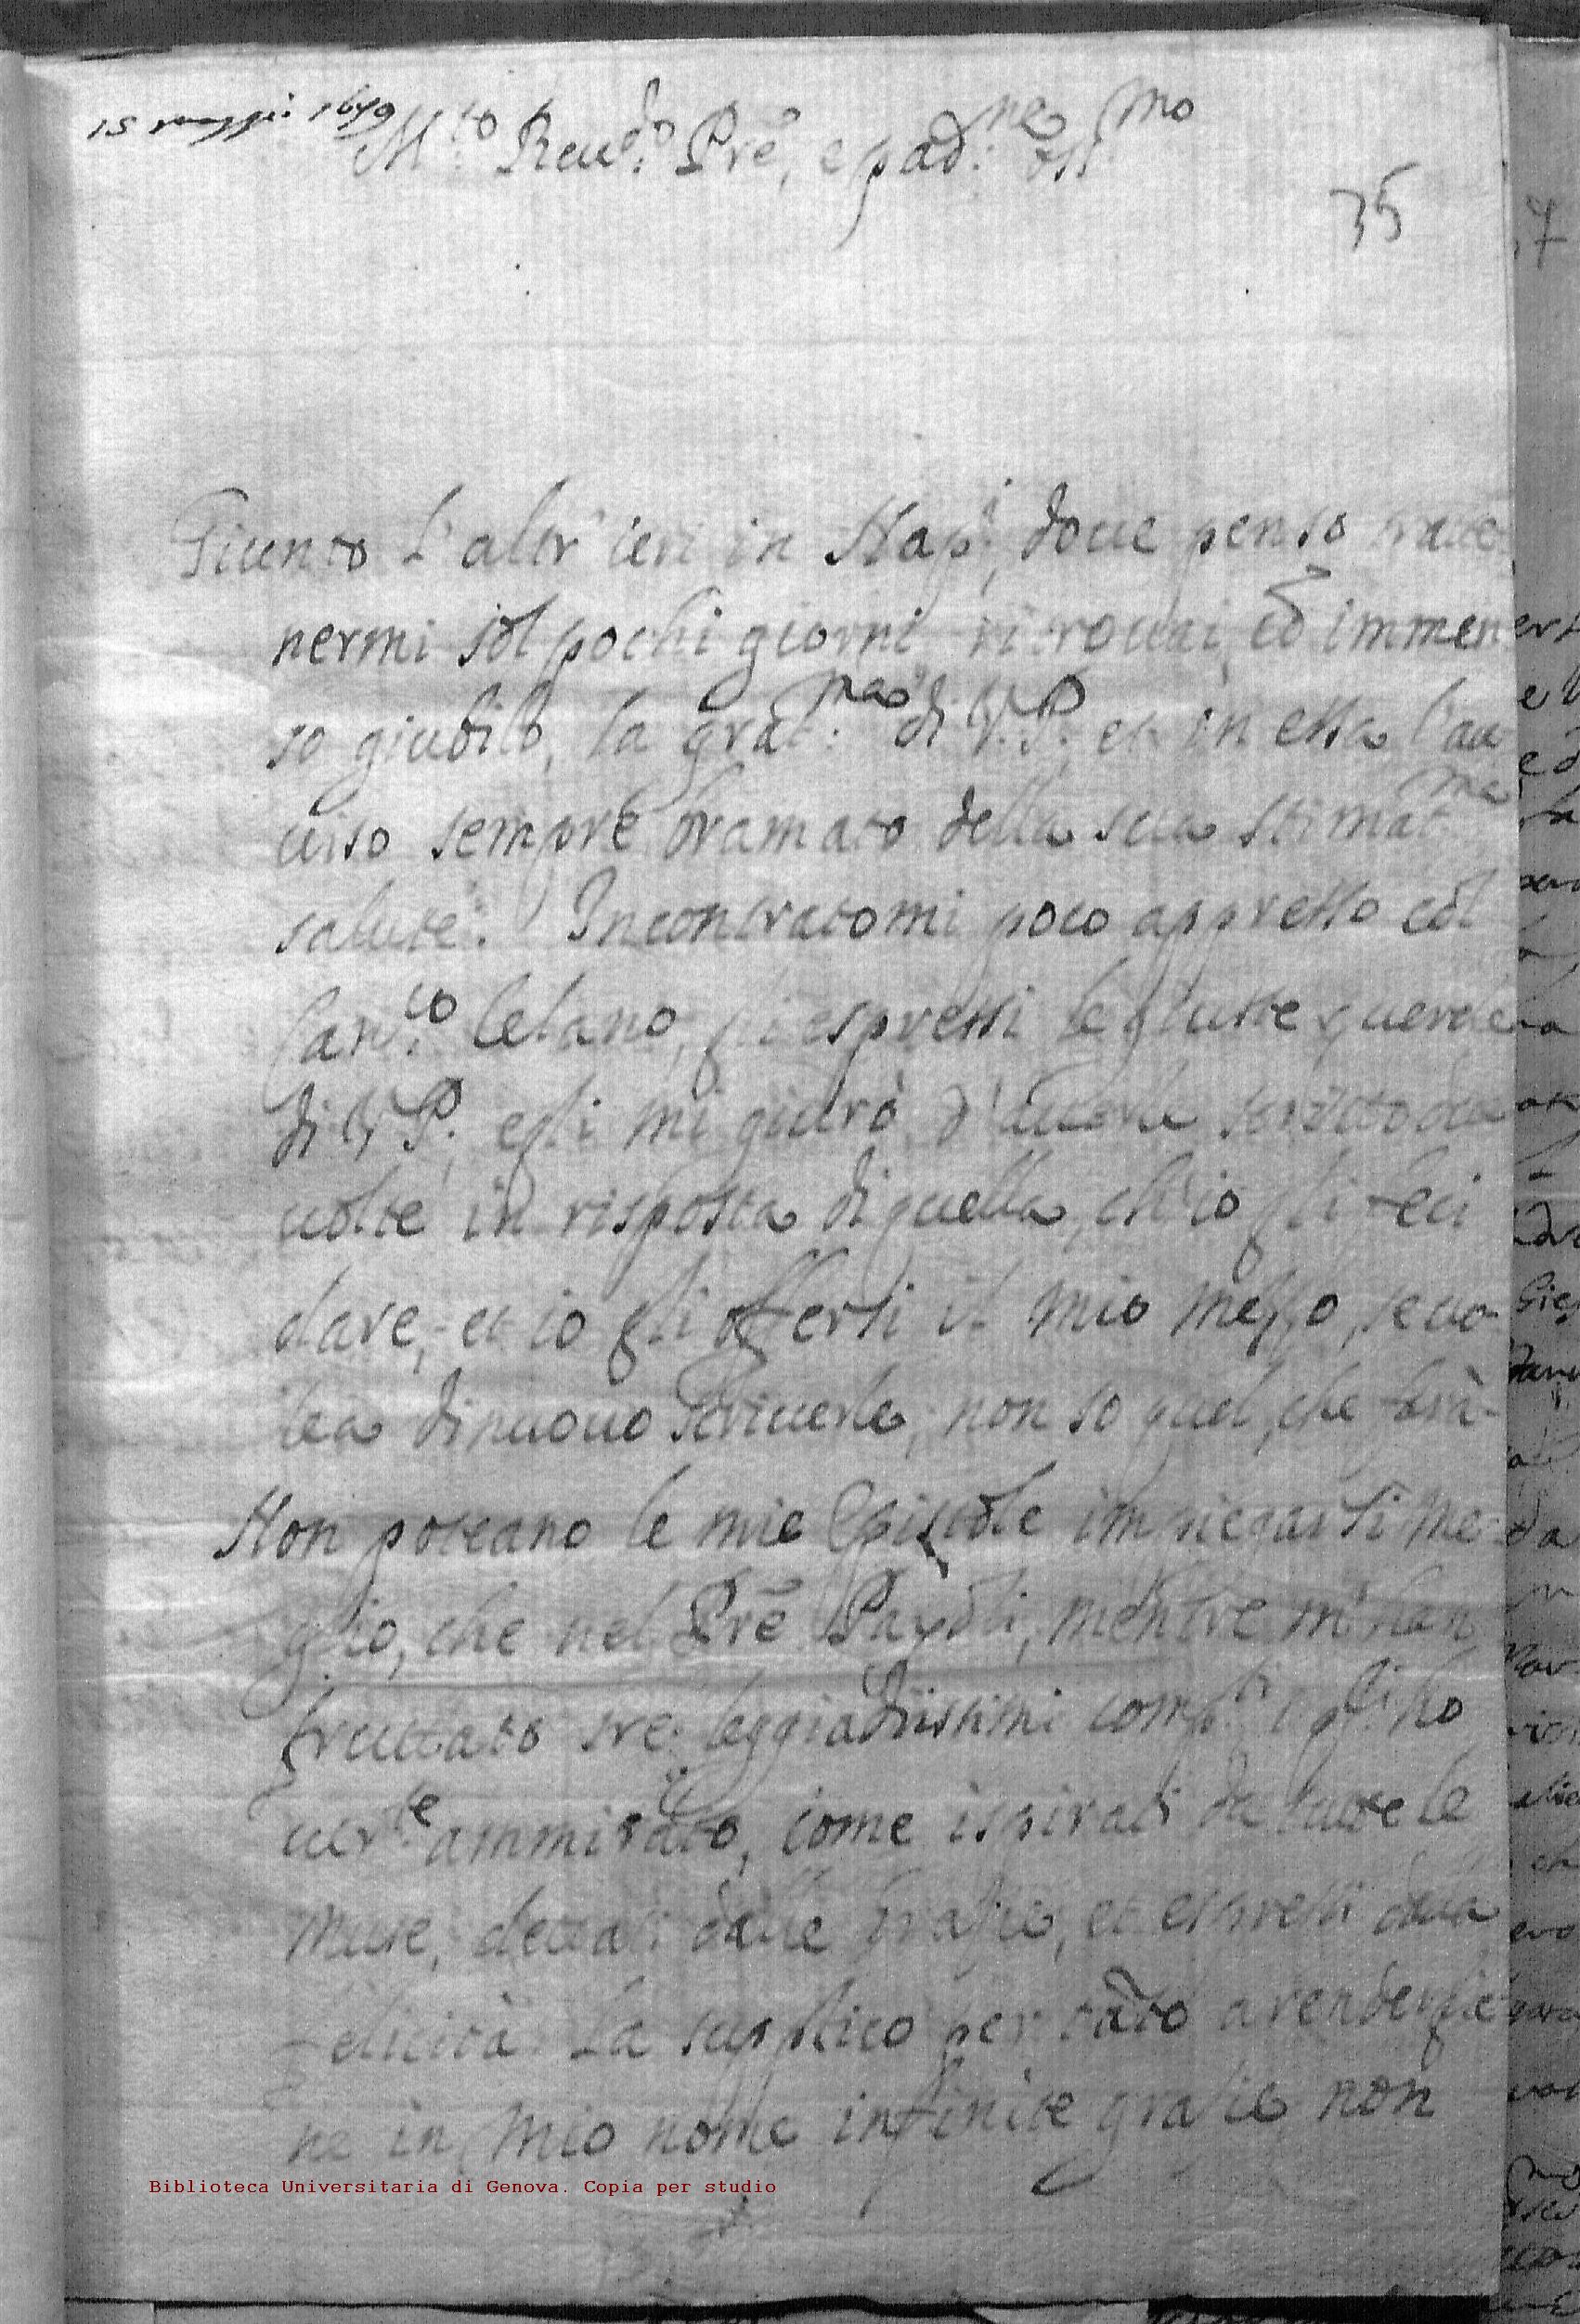 15 maggio 1679
M.to Reu.do Pre, e pad.ne oss.mo
35
Giunto l'altr'ieri in Nap.i, doue penso tratte
nermi sol pochi giorni ritrouai, cõ immen
so giubilo, la grat.ma di V.P. et in essa l'au
uiso sempre bramato della sua stimat.ma
salute. Incontratomi poco appresso col
Can.co Celano, gli espressi le giuste querele
di V.P. egli mi giurò, d'hauerle scritto due
uolte in risposta di quella, ch'io gli feci
dare, et io gli offersi il mio mezzo, se uo-
lea di nuouo scriuerle; non so quel, che farà.
Non poteano le mie Epistole impiegarsi me-
glio, che nel Prē Payoli, mentre m'han
fruttato tre leggiadrissimi comp.ti ho
ammirato, come ispirati da tutte le
Muse, dettati dalle Grazie, et espressi dalla
felicità. La supplico per tãto a rendergli
ne in mio nome infinite grazie, non
Biblioteca Universitaria di Genova. Copia per studio